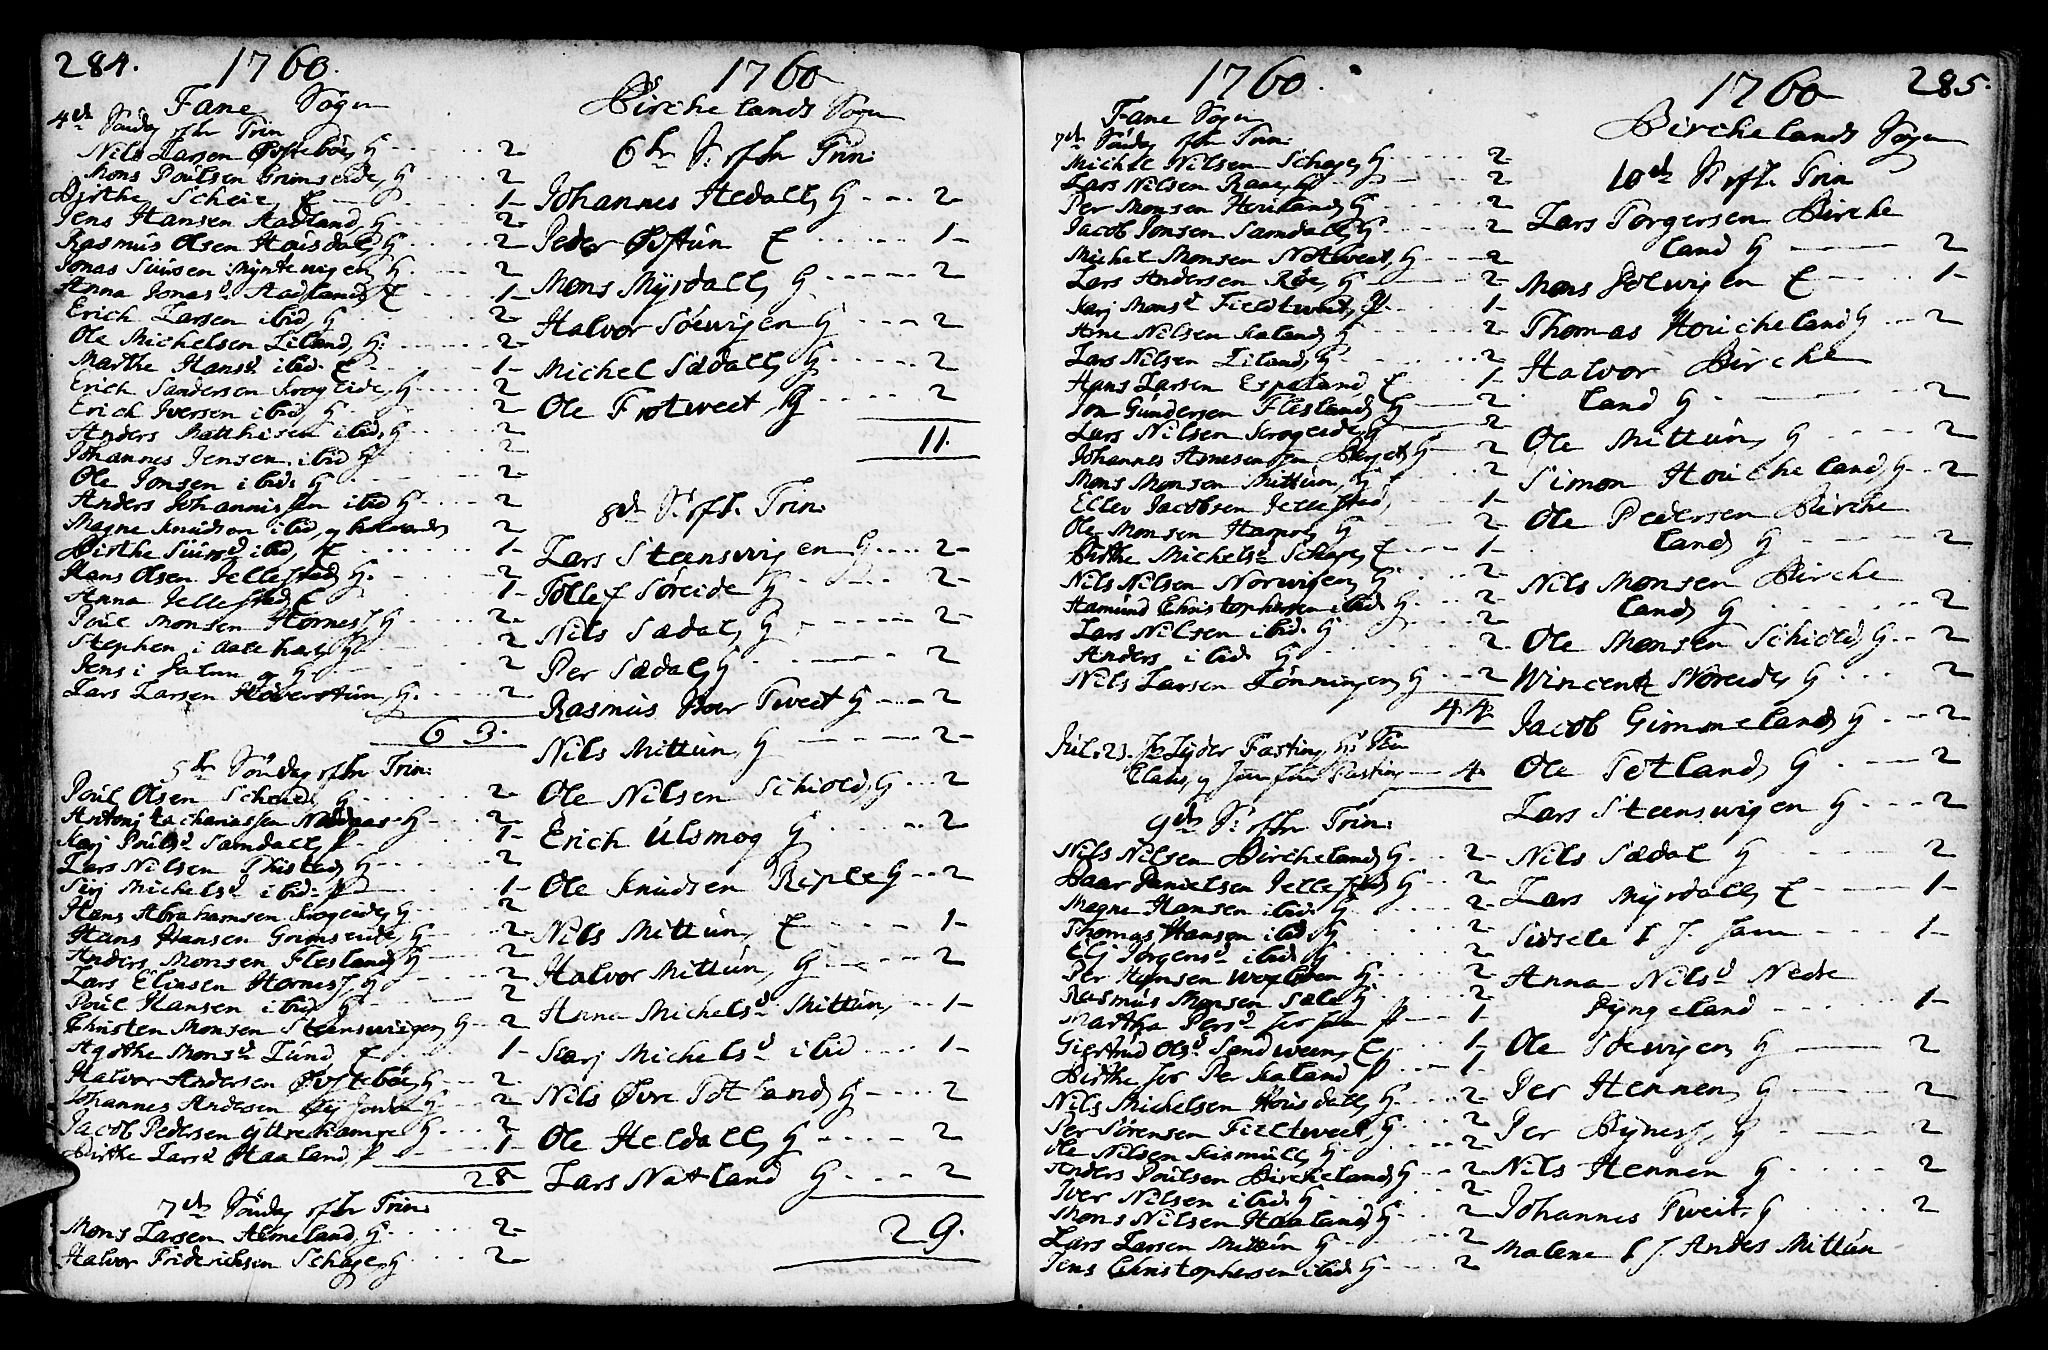 284.
1760.
Fane Sogn
4de Søndag efter Trin
Nils Larsen Øvstebøe, G - - - 2
Mons Poulsen Grimseide, G - - - 2
Birthe Scheie, E - - - 1
Jens Hansen Aadland, G - - - 2
Rasmus Olsen Hoisdal, G - - - 2
Jonas Siursen Myntewigen G - - - 2
Anna Jonasd. Aadland, E - - - 1
Erich Larsen ibid G - - - 2
Ole Michelsen Liland, G - - - 2
Marthe Hansd ibid. E - - - 1
Erich Sandersen Krogeide, G - - - 2
Erich Iversen ibid, G - - - 2
Anders Matthisen ibid, G - - - 2
Johannes Jensen ibid G - - - 2
Ole Jonsen ibid. G - - - 2
Anders Johannissen ibid G - - - 2
Magne Knudsen ibid, 2
Birthe Siursd ibid, E - - - 1
Hans Olsen Jellestad, G. - - - 2
Anna Jellestad, E - - - 1
Poul Monsen Hornes, G - - - 2
Stephen i G - - - 2
Jens i G - - - 2
Lars Larsen Høverstun, G. - - - 2
63.
5te Søndag efter Trin:
Poul Olsen G - - - 2
Antoni Zachariassen G - - - 2
Kari Poulsd Samdal, P - - - 1
Lars Nilsen Thistad, G - - - 2
Siri Michelsd ibid: P - - - 1
Hans Abrahamsen Krogeide, G - - - 2
Hans Hansen Grimseide, G - - - 2
Anders Monsen Flesland, G - - - 2
Lars Eliasen Hornes, G - - - 2
Poul Hansen ibid G - - - 2
Christen Monsen Steenswigen G - - 2
Agothe Monsd Lund E - - - 1
Halvor Andersen Øvstebøe, G - - - 2
Johannes Andersen G - - - 2
Jacob Pedersen Yttrehamre G - - - 2
Birthe Larsd Haaland, P - - - 1
28
7de Søndag efter Trin:
Mons Larsen Hemeland, G - - - 2
Halvor Friderichsen Schage, G - - - 2
1760
Birchelands Sogn
6te S: efter Trin:
Johannes Hedal, G - - - 2
Peder Øvstun E - - - 1
Mons Myrdal, G - - - 2
Halvor Søewigen G - - - 2
Michel Sædal, G - - - 2
Ole Frotweet, G - - - 2
11.
8de S: eft. Trin:
Lars Steenswigen G - - - 2
Tollef Søreide G - - - 2
Nils Sædal, G - - - 2
Per Sædal, G - - - 2
Rasmus Boer Tweit G - - - 2
Nils Mittun, G - - - 2
Ole Nilsen Schiold, G - - - 2
Erich Ulsmog G - - - 2
Ole Knudsen Riple G - - 2
Nils Mittun, E - - - 1
Halvor Mittun, G - - - 2
Anna Michelsd Mittun, - - 1
Kari Michelsd ibid - - - 1
Nils Øvre Totland, G - - - 2
Ole Heldal, G - - - 2
Lars Natland G - - - 2
29.
1760.
Fane Sogn
7de Søndag efter Trin:
Michel Nilsen Schage, G - - - 2
Lars Nilsen Rane, G - - - 2
Per Monsen G - - - 2
Jacob Jonsen Samdal, G - - - 2
Michel Monsen Notweet, G - - - 2
Lars Andersen Røe, G - - - 2
Kari Monsd Fieldtweit, P - - - 1
Arne Nilsen Kaland, G - - - 2
Lars Nilsen Liland, G - - - 2
Hans Larsen Espeland, E - - - 1
Jon Gundersen Flesland, G - - - 2
Lars Nilsen Krogeide, G - - - 2
Johannes Arnesen G - - - 2
Mons Monsen Mittun, G - - - 2
Ellev Jacobsen Jellestad, - - - 1
Ole Monsen Hamre, G - - - 2
Birthe Michelsd Schage, E - - - 1
Nils Nilsen Norwigen, G - - - 2
Hamund Christophersen ibid, G - - - 2
Lars Nilsen ibid. G - - - 2
Anders ibid G - - - 2
Nils Larsen Lønningen, G - - - 2
44
Jul. 23. Hr Lyder Fasting,
Claus, Fasting - - 4.
9de S: efter Trin:
Nils Nilsen Bircheland, G - - - 2
Baar Danielsen Jellestad, G - - - 2
Magne Hansen ibid. G - - - 2
Thomas Hansen ibid, G - - - 2
Eli Jørgensd ibid, G - - - 2
Per Hansen G - - - 2
Rasmus Monsen Sæle, G - - - 2
Martha Persd P - - - 1
Giertrud Olsd Sandween, E - - - 1
Birthe for Per Kaland P - - - 1
Nils Michelsen Hoisdal, G - - - 2
Per Sørensen Fieltweet, G - - - 2
Ole Nilsen G - - - 2
Anders Poulsen Bircheland, G - - - 2
Iver Nilsen ibid, G - - - 2
Mons Nilsen Haaland, G - - - 2
Lars Larsen Mittun G - - - 2
Jens Christophersen ibid G - - - 2
1760
285.
Birchelands Sogn
10de S: eft. Trin
Lars Torgersen Birche
land G - - - 2
Mons Solwigen E - - - 1
Thomas Houcheland G - - - 2
Halvor Birche
land G - - - 2
Ole Mittun, G - - - 2
Simon Houcheland, G - - 2
Ole Pedersen Birche
land, G - - - 2
Nils Monsen Birche
land, G - - - 2
Ole Monsen Schiold, G - - 2
Wincent Noreide, G - - - 2
Jacob Gimmeland, G - - - 2
Ole Totland, G - - - 2
Lars Steenswigen G - - - 2
Nils Sædal G - - - 2
Lars Myrdal, E - - - 1
Sidsele - - - 1
Anna Nilsd Nedre
Ryngeland - - 1
Ole Søewigen, G - - - 2
Per Hennen, G - - - 2
Per Bynes, G - - - 2
Nils Hennen G - - - 2
Johannes Tweit. G - - - 2
Malene Andes Mittun